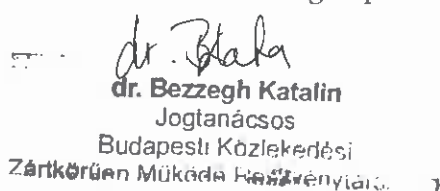 dr.
dr. Bezzegh Katalin
Jogtanácsos
Budapesti Közlekedési
Zártkörűen Működő